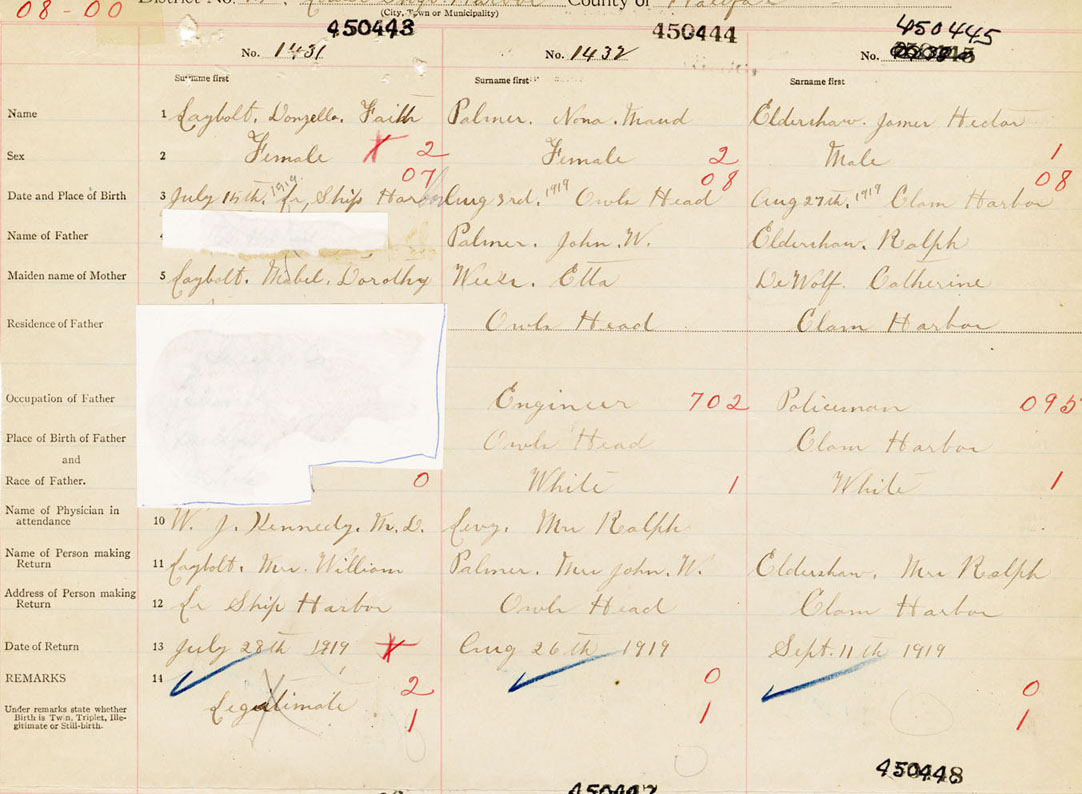 08-00
District No. County of Halifax
(City, Town or Municipality)
450443 450444 450445
No. 1431 No. 1432 No.
Surname first Surname first Surname first
Name 1 Laybolt. Donzella. Faith Palmer. Nona. Maud Eldershaw. James Hector
Sex 2 Female X 2 Female 2 Male 1
07 08 08
Date and Place of Birth 3 July 15th, 1919. Lr, Ship Harbor Aug 3rd. 1919 Owls Head Aug 27th. 1919 Clam Harbor
Name of Father 4 Palmer. John. W. Eldershaw. Ralph
Maiden name of Mother 5 Laybolt. Mabel. Dorothy Weeks. Etta DeWolf. Catherine
Residence of Father Owls Head Clam Harbor
Occupation of Father Engineer 702 Policeman 095
Place of Birth of Father Owls Head Clam Harbor
and
Race of Father. 0 White 1 White 1
Name of Physician in
attendance 10 W. J. Kennedy. M. D. Levy. Mrs Ralph
Name of Person making
Return 11 Laybolt. Mrs. William Palmer. Mrs John. W. Eldershaw. Mrs Ralph
Address of Person making
Return 12 Lr Ship Harbor Owls Head Clam Harbor
Date of Return 13 July 28th 1919 X Aug 26th 1919 Sept. 11th 1919
REMARKS 14 2 0 0
Under remarks state whether
Birth is Twin, Triplet, Ille-
gitimate or Still-birth. Legitimate 1 1 1
450447 450448